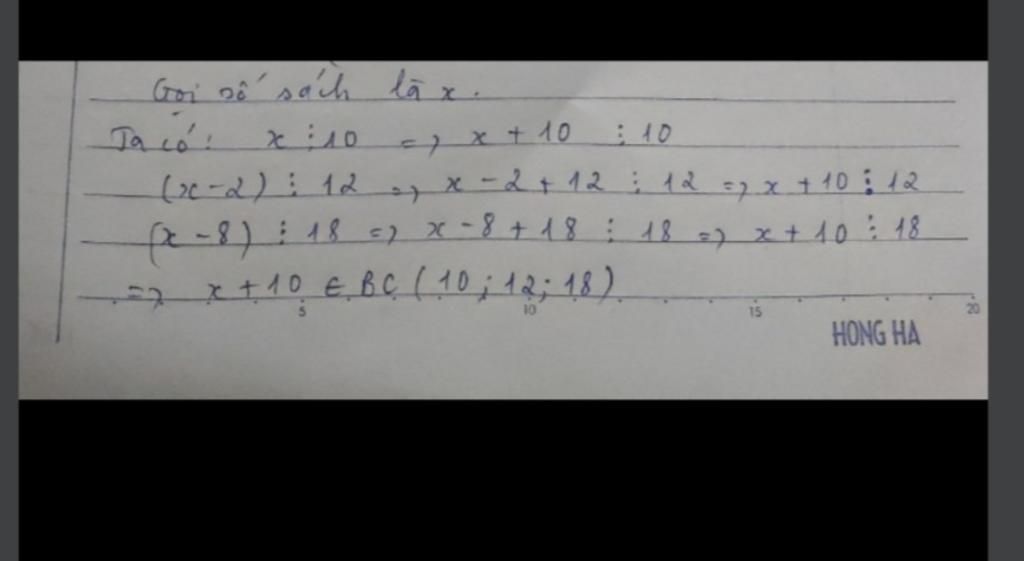 Gọi số sách là x.
Ta có: x ⋮ 10 => x + 10 ⋮ 10
(x - 2) ⋮ 12 => x - 2 + 12 ⋮ 12 => x + 10 ⋮ 12
(x - 8) ⋮ 18 => x - 8 + 18 ⋮ 18 => x + 10 ⋮ 18
=> x + 10 ∈ BC (10; 12; 18)
5 10 15 20
HONG HA